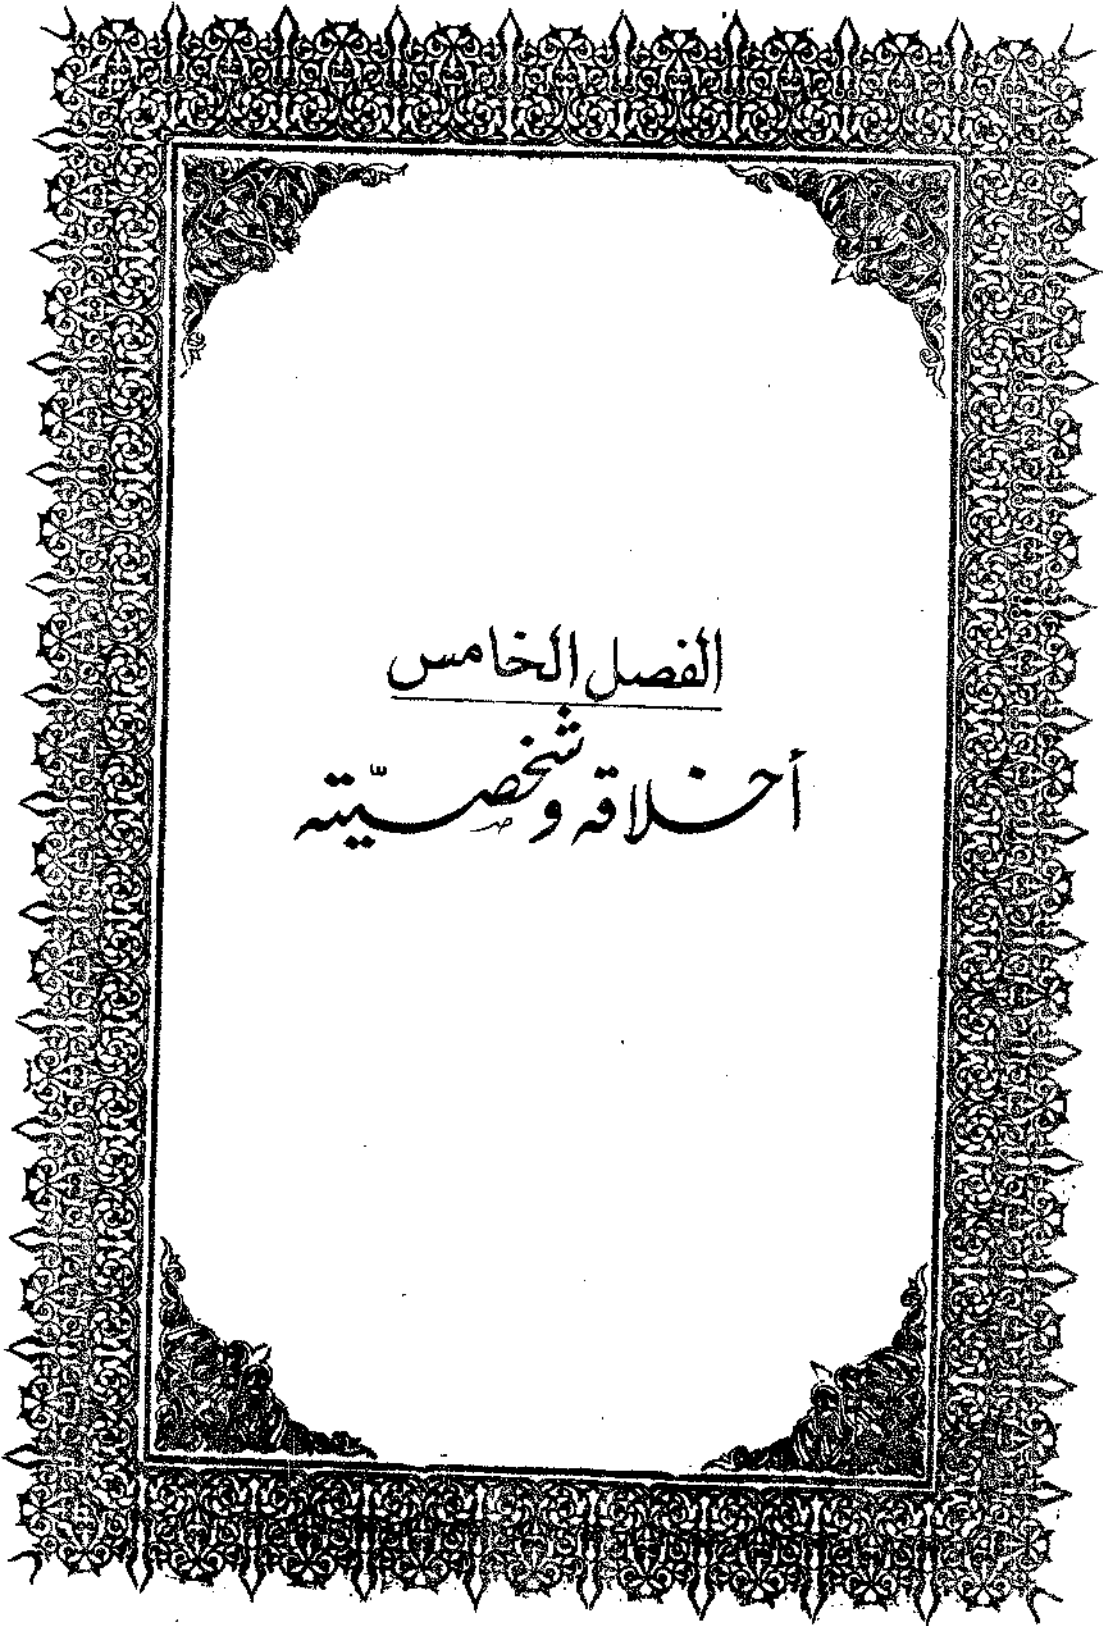 الفصل الخامس
أخلاقه وشخصيّته